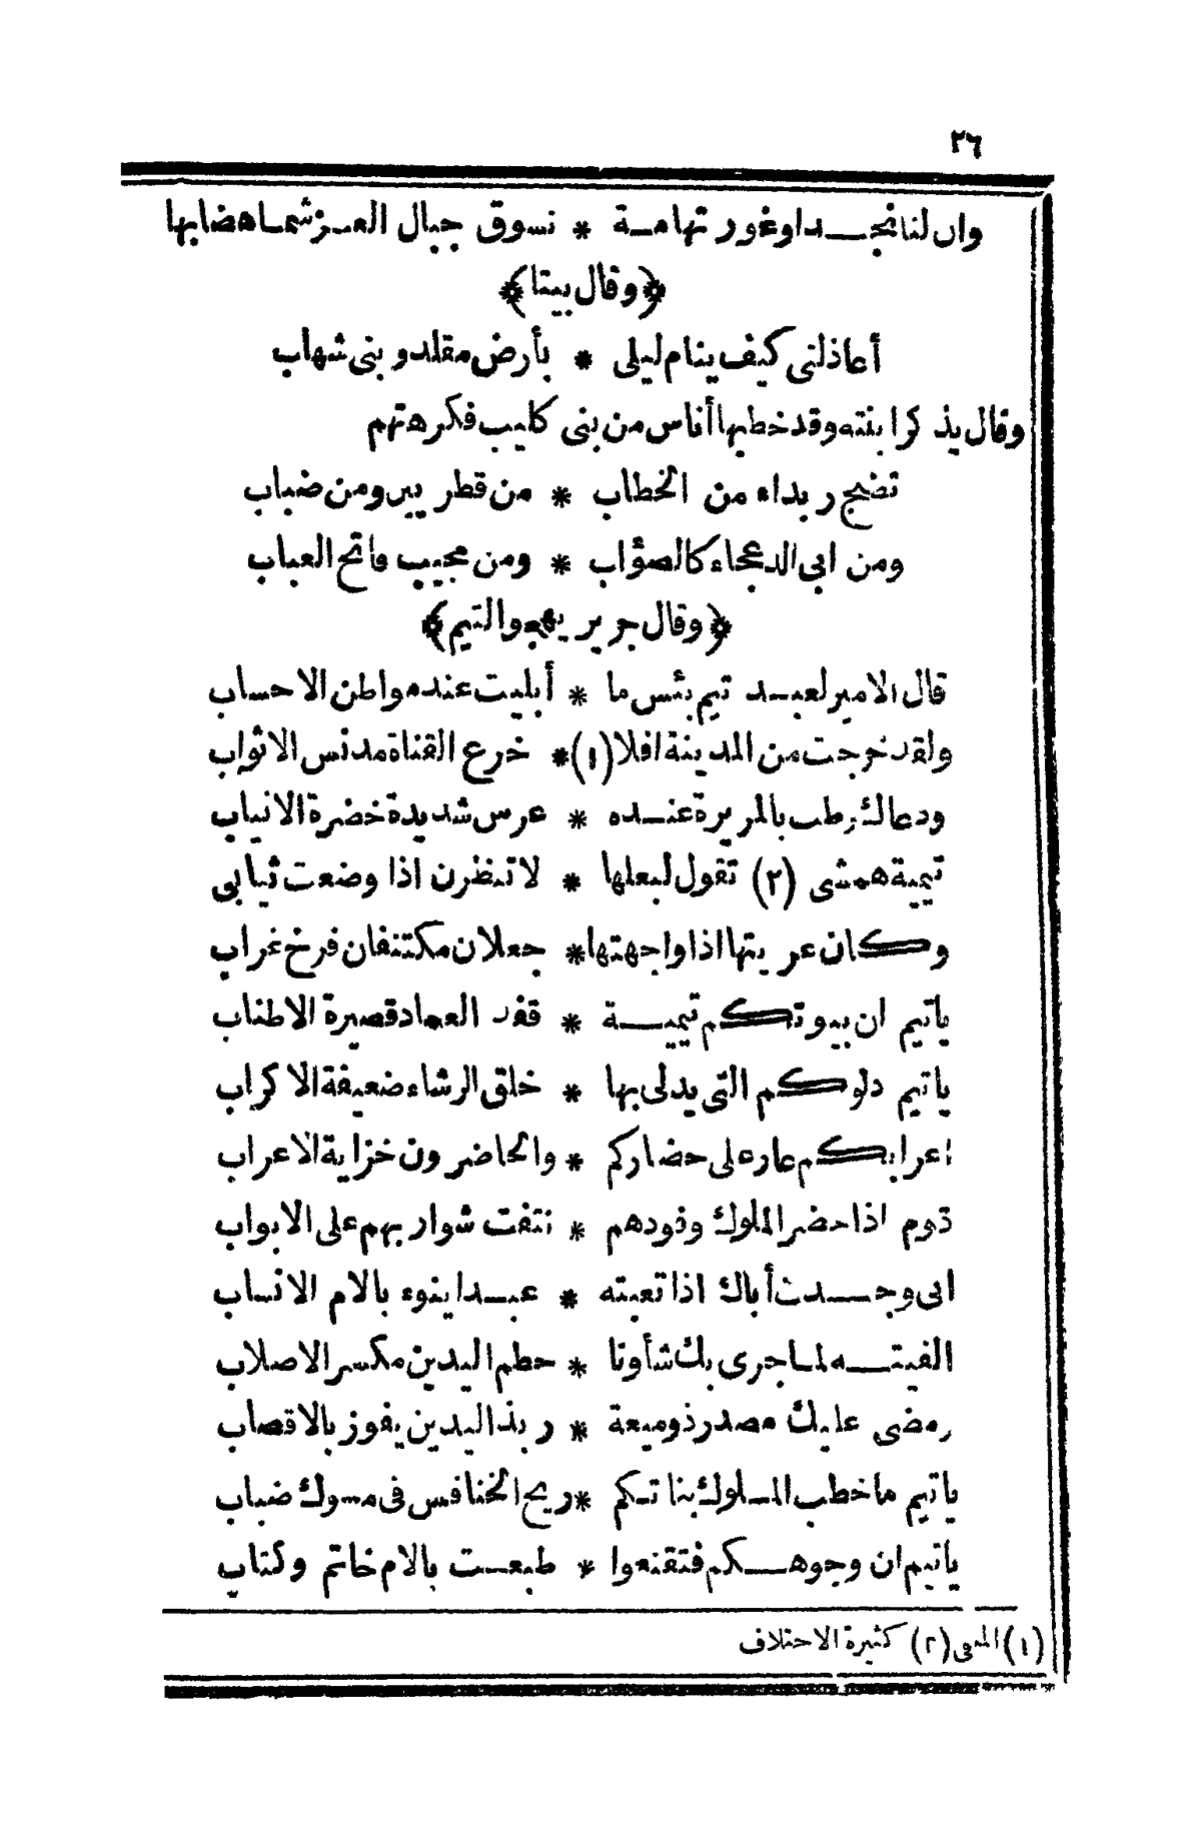 ٢٦
وان لنا نجدا وغور تهامة * نسوق جبال العز شما هضابها
﴿وقال بيتا﴾
أعاذلتى كيف ينام ليلى * بأرض مقلد وبنى شهاب
وقال يذكر ابنته وقد خطبها أناس من بنى كليب فكرهتهم
تضج ربداء من الخطاب * من قطريين ومن ضباب
ومن ابى الدعجاء كالصؤاب * ومن مجيب فاتح العباب
﴿وقال جرير يهجو التيم﴾
قال الامير لعبد تيم بئس ما * أبليت عند مواطن الاحساب
ولقد خرجت من المدينة افلا (١) * خرع القناة مدنس الاثواب
ودعاك وطب بالمريرة عنده * عرس شديدة خضرة الانياب
تيمية همشى (٢) تقول لبعلها * لا تنظرن اذا وضعت ثيابى
وكان عريتها اذا واجهتها * جعلان مكتنفان فرخ غراب
ياتيم ان بيوتكم تيمية * قفد العماد قصيرة الاطناب
ياتيم دلوكم التى يدلى بها * خلق الرشاء ضعيفة الاكراب
اعرابكم عار على حضاركم * والحاضرون خزاية الاعراب
قوم اذا حضر الملوك وفودهم * نتفت شواربهم على الابواب
انى وجدت أباك اذ اتعبته * عبدا ينوء بالام الانساب
الفيته لما جرى بك شأونا * حطم اليدين مكسر الاصلاب
ومضى عليك مصدر ذو ميعة * ربذ اليدين يفوز بالاقصاب
ياتيم ما خطب الملوك بناتكم * ريح الخنافس فى مسوك ضباب
ياتيم ان وجوهكم فتقنعوا * طبعت بالام خاتم وكتاب
(١) المنفى (٢) كثيرة الاختلاف